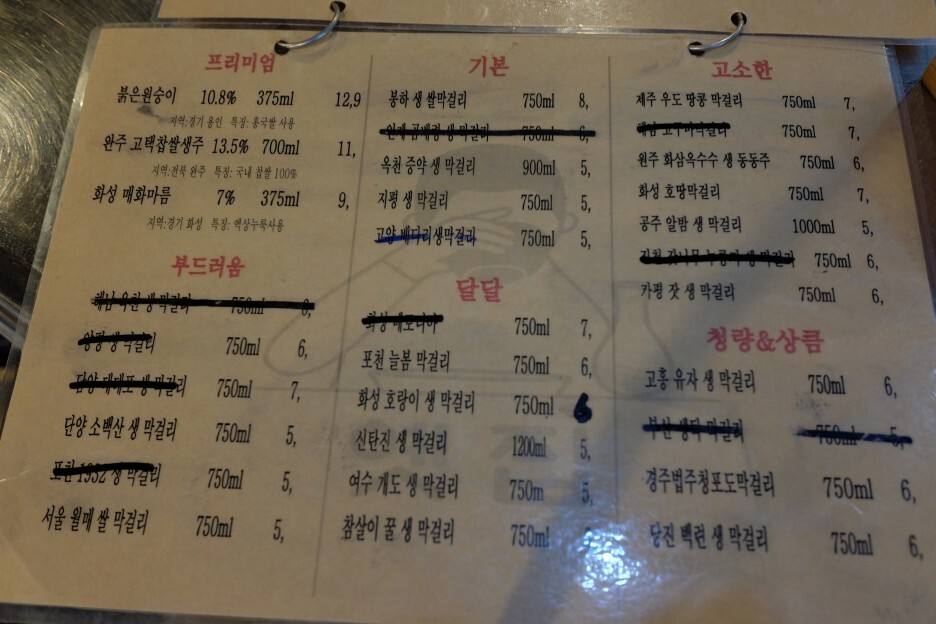 프리미엄
붉은원숭이 10.8% 375ml 12,9
지역:경기 용인 특징: 홍국쌀 사용
완주 고택찹쌀생주 13.5% 700ml 11,
지역:전북 완주 특징: 국내 찹쌀 100%
화성 매화마름 7% 375ml 9,
지역:경기 화성 특징: 액상누룩사용
부드러움
해남 옥천 생 막걸리 750ml 6,
양평 생 막걸리 750ml 6,
담양 대대포 생 막걸리 750ml 7,
단양 소백산 생 막걸리 750ml 5,
포천 1932 생 막걸리 750ml 5,
서울 월매 쌀 막걸리 750ml 5,
기본
봉하 생 쌀막걸리 750ml 8,
생 막걸리 750ml 6,
옥천 증약 생 막걸리 900ml 5,
지평 생 막걸리 750ml 5,
고양 배다리생막걸리 750ml 5,
달달
화성 750ml 7,
포천 늘봄 막걸리 750ml 6,
화성 호랑이 생 막걸리 750ml 6
신탄진 생 막걸리 1200ml 5,
여수 개도 생 막걸리 750m 5,
참살이 꿀 생 막걸리 750ml
고소한
제주 우도 땅콩 막걸리 750ml 7,
해남 고구마막걸리 750ml 7,
원주 화삼옥수수 생 동동주 750ml 6,
화성 호땅막걸리 750ml 7,
공주 알밤 생 막걸리 1000ml 5,
생 막걸리 750ml 6,
카평 잣 생 막걸리 750ml 6,
청량&상큼
고흥 유자 생 막걸리 750ml 6,
부산 생탁 막걸리 750ml 5,
경주법주청포도막걸리 750ml 6,
당진 백련 생 막걸리 750ml 6,